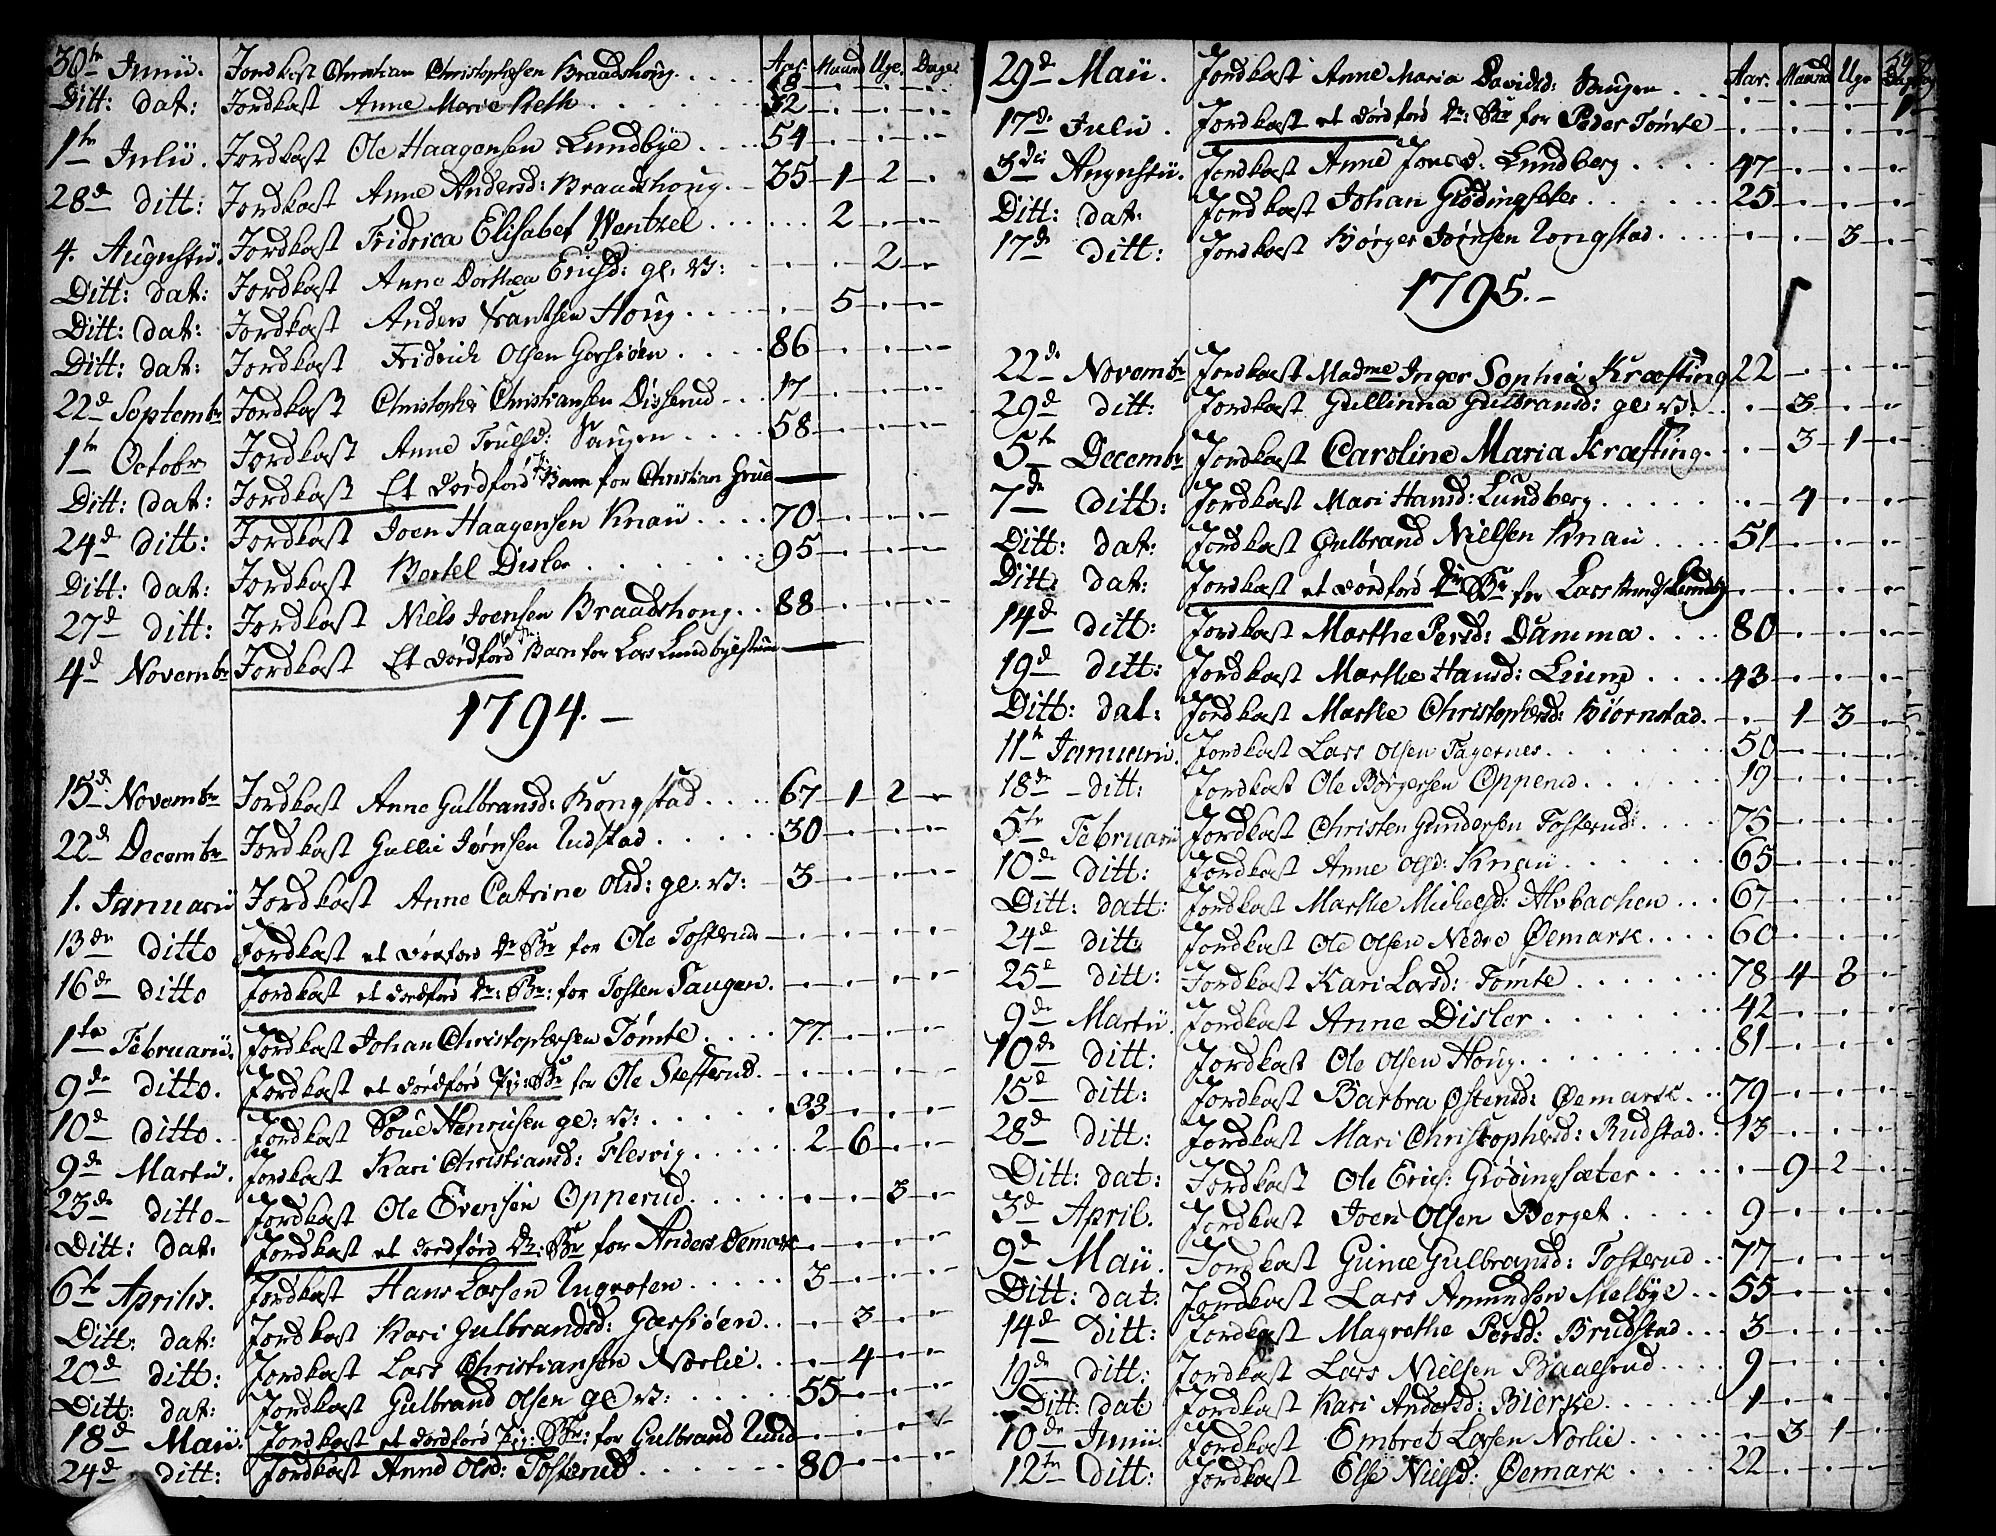 Aar. Maand Uge. Dage.
30te Junii. Jordkast Christian Christophersen Braadshoug. 48
Ditt: dat: Jordkast Anne Marie 52
1te Julii. Jordkast Ole Haagensen Lundbye 54
28d ditt: Jordkast Anne Andersd: Braadshoug. 35 1 2
4. Augustii. Jordkast Fridrica Elisabet Wentzel 2
Ditt: dat: Jordkast Anne Dorthea Ericsd: ge: V: 2
Ditt: dat: Jordkast Anders Frantsen Houg 5
Ditt: dat: Jordkast Fridrich Olsen Gorsiøen 86
22d Septembr Jordkast Christopher Christiansen Disserud 17
1te Octobr Jordkast Anne Truelsd: Saugen 58
Ditt: dat: Jordkast Et dødfød Barn for Christian Grue
24d ditt: Jordkast Joen Haagensen Knau 70
Ditt: dat: Jordkast Bertel Disler 95
27d ditt: Jordkast Niels Joensen Braadshoug 88
4d Novembr Jordkast Et dødfød Barn for Lars Lundbyestuen
1794.
15d Novembr Jordkast Anne Gulbransd: Kongstad 67 1 2
22d Decembr Jordkast Gullic Jørnsen Rudstad 30
1. Januarii Jordkast Anne Catrine Olsd: ge: V: 3
13de ditto Jordkast et dødfød Dr: Br for Ole Tosterud
16de ditto Jordkast et dødfød Dr: Br: for Tosten Saugen.
1te Februarii. Jordkast Johan Christophersen Tømte 77.
9de ditto. Jordkast et dødfød Pig: Br for Ole Stefferud.
10de ditto. Jordkast Poue Henricsen ge: V: 33
9de Martii. Jordkast Kari Christiansd: Flesvig 2 6
23de ditto Jordkast Ole Evensen Opperud 3
Ditt: dat. Jordkast et dødfød Dr: Br for Anders Øemark
6te Aprilis. Jordkast Hans Larsen Ingrosen 3
Ditt: dat: Jordkast Kari Gulbrandsd: Garsiøen 3
20de ditt: Jordkast Lars Christiansen Norlie 4
Ditt: dat: Jordkast Gulbrand Olsen ge V: 55
18d Maii. Jordkast et dødfød Pig: Br: for Gulbrand Lund
24de ditt: Jordkast Anne Olsd: Tosterud 80
Aar. Maand Uge Dage
29d Maii. Jordkast Anne Maria Davidsd: Saugen 1
17de Julii. Jordkast et dødfød Dr: Br for Peder Tømte
3die Augustii. Jordkast Anne Jonsd: Lundberg 47
Ditt: dat: Jordkast Johan Giødingseter 25
17de ditt: Jordkast Børger Jørnsen Kongstad 3
1795.
22de Novembr Jordkast Madme Inger Sophia Kræfting 22
29d ditt: Jordkast Gullinna Gulbransd: ge V: 3
5te Decembr Jordkast Caroline Maria Kræfting 3 1
7de ditt: Jordkast Mari Hansd: Lundberg 4
Ditt: dat: Jordkast Gulbrand Nielsen Knau 51
Ditt: dat: Jordkast et dødfød Dr: Br for Lars Lundby
14d ditt: Jordkast Marthe Persd: Damma 80
19d ditt: Jordkast Marthe Hansd: Leium 43
Ditt: dat: Jordkast Marthe Christophersd: Biørnstad 1 3
11te Januarii. Jordkast Lars Olsen Fagernes 50
18de ditt: Jordkast Ole Børgersen Opperud 19
5te Februarii Jordkast Christen Gundersen Tosterud: 75
10de ditt: Jordkast Anne Olsd: Knau 65
Ditt: datt: Jordkast Marthe Michelsd: Alvbachen 67
24d ditt: Jordkast Ole Olsen Nedre Øemark 60
25d ditt: Jordkast Kari Larsd: Tømte 78 4 3
9de Martii. Jordkast Anne Disler 42
10de ditt: Jordkast Ole Olsen Houg 81
15d ditt: Jordkast Barbra Østensd: Øemark 79
28d ditt: Jordkast Mari Christophersd: Rudstad 13
Ditt: dat: Jordkast Ole Erics: Giødingsæter 9 2
3d April. Jordkast Joen Olsen Berget 9
9d Maii. Jordkast Gunie Gulbransd: Tosterud 77
Ditt: dat: Jordkast Lars Amundsen Melbye 55
14d ditt: Jordkast Magrethe Persd: Brudstad 3
19de ditt: Jordkast Lars Nielsen Baaelsrud 9
Ditt: dat Jordkast Kari Andersd: Bierke 1
10de Junii Jordkast Embret Larsen Norlie 3 1
12te ditt: Jordkast Else Nielsd: Øemark 22